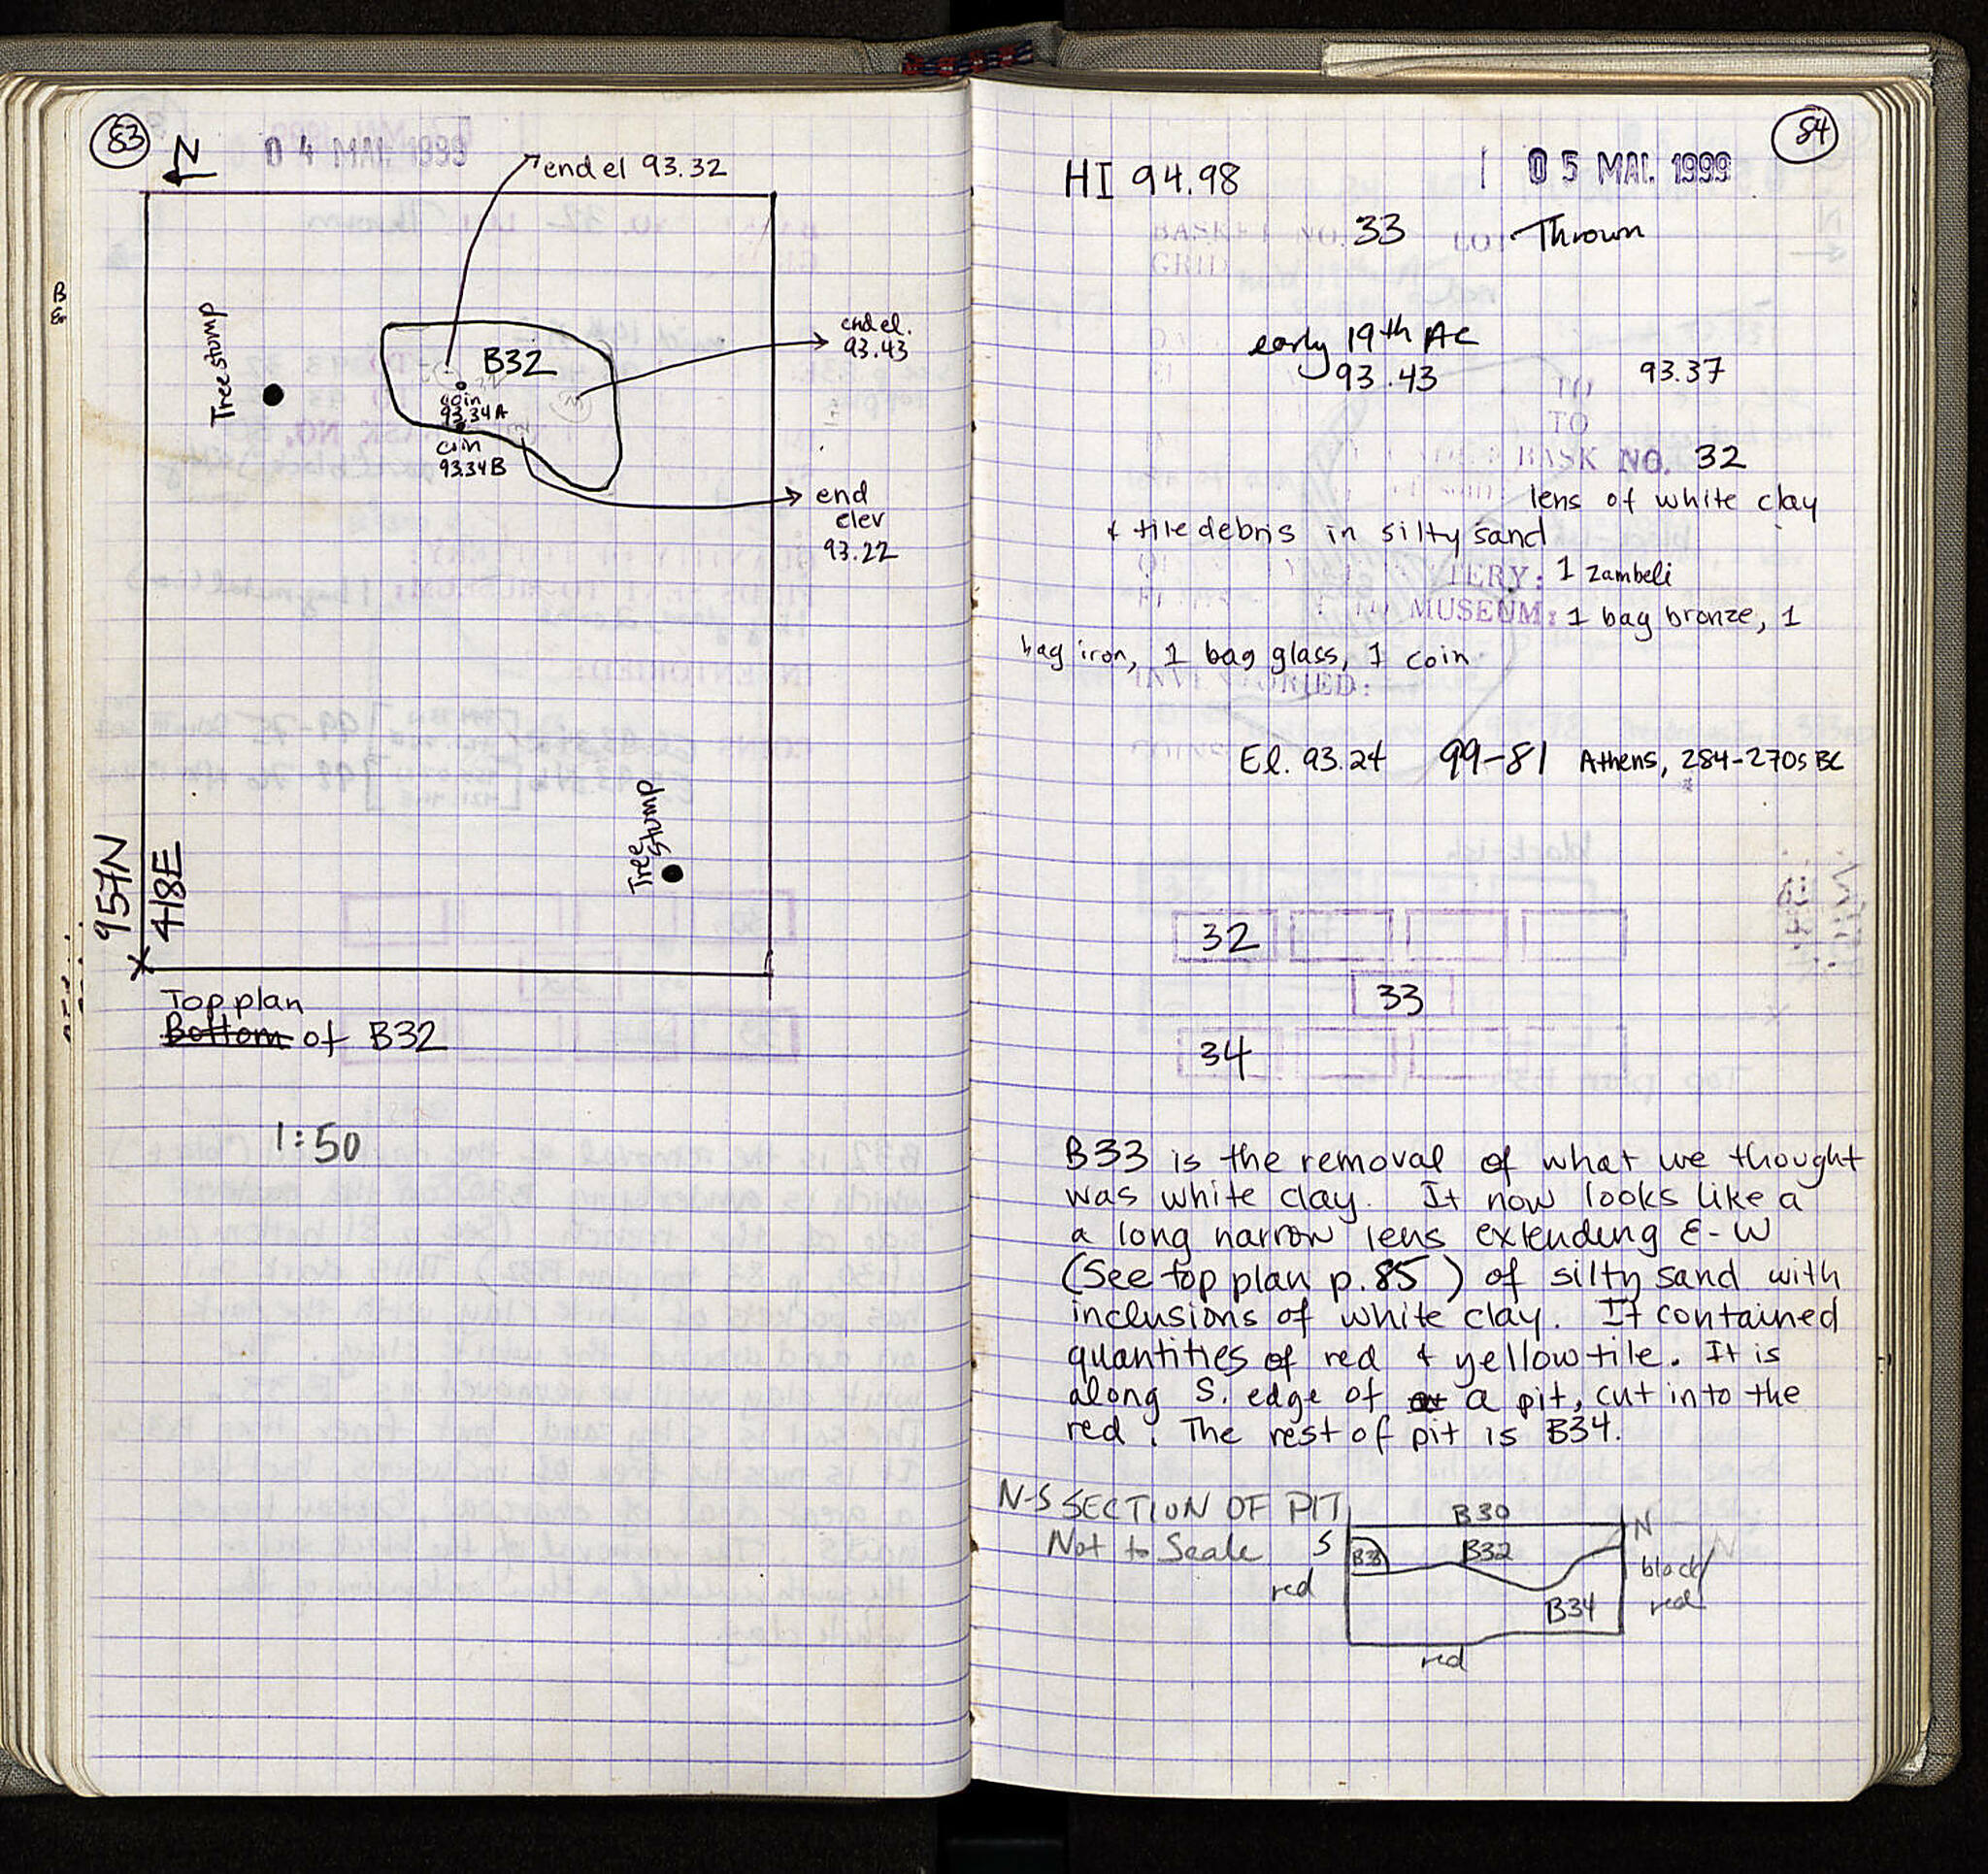 83
N
04 MAI. 1999
end el 93.32
Tree stump
B32
coin
93.34A
coin
93.34B
end el.
93.43
end
elev
93.22
Tree
stump
957N
418E
Top plan
Bottom of B32
1:50
84
HI 94.98
05 MAI. 1999
BASKET NO. 33 LOT Thrown
GRID
early 19th AC
93.43 TO 93.37
TO
BASK NO. 32
lens of white clay
& tile debris in silty sand
TERY: 1 zambeli
MUSEUM: 1 bag bronze, 1
bag iron, 1 bag glass, 1 coin
INVENTORIED:
El. 93.24 99-81 Athens, 284-270s BC
32
33
34
B33 is the removal of what we thought
was white clay. It now looks like a
a long narrow lens extending E-W
(See top plan p.85) of silty sand with
inclusions of white clay. It contained
quantities of red & yellow tile. It is
along S. edge of a pit, cut into the
red. The rest of pit is B34.
N-S SECTION OF PIT
Not to Scale
B30
S
N
B33
B32
black/
red
red
B34
red